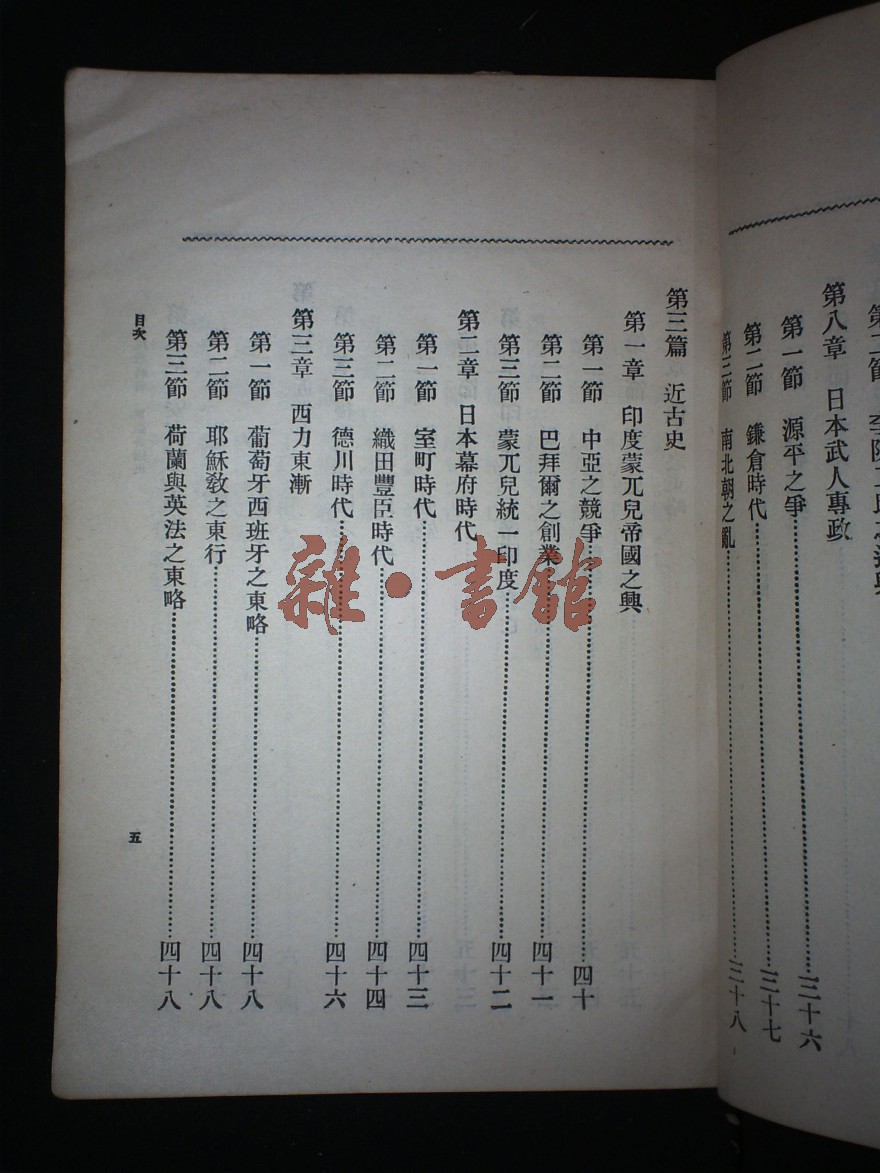 第八章　日本武人專政
第一節　源平之爭……三十六
第二節　鎌倉時代……三十七
第三節　南北朝之亂……三十八
第三篇　近古史
第一章　印度蒙兀兒帝國之興
第一節　中亞之競爭……四十
第二節　巴拜爾之創業……四十一
第三節　蒙兀兒統一印度……四十二
第二章　日本幕府時代
第一節　室町時代……四十三
第二節　織田豐臣時代……四十四
第三節　德川時代……四十六
第三章　西力東漸
第一節　葡萄牙西班牙之東略……四十八
第二節　耶穌敎之東行……四十八
第三節　荷蘭與英法之東略……四十八
目次
五
雜·書館